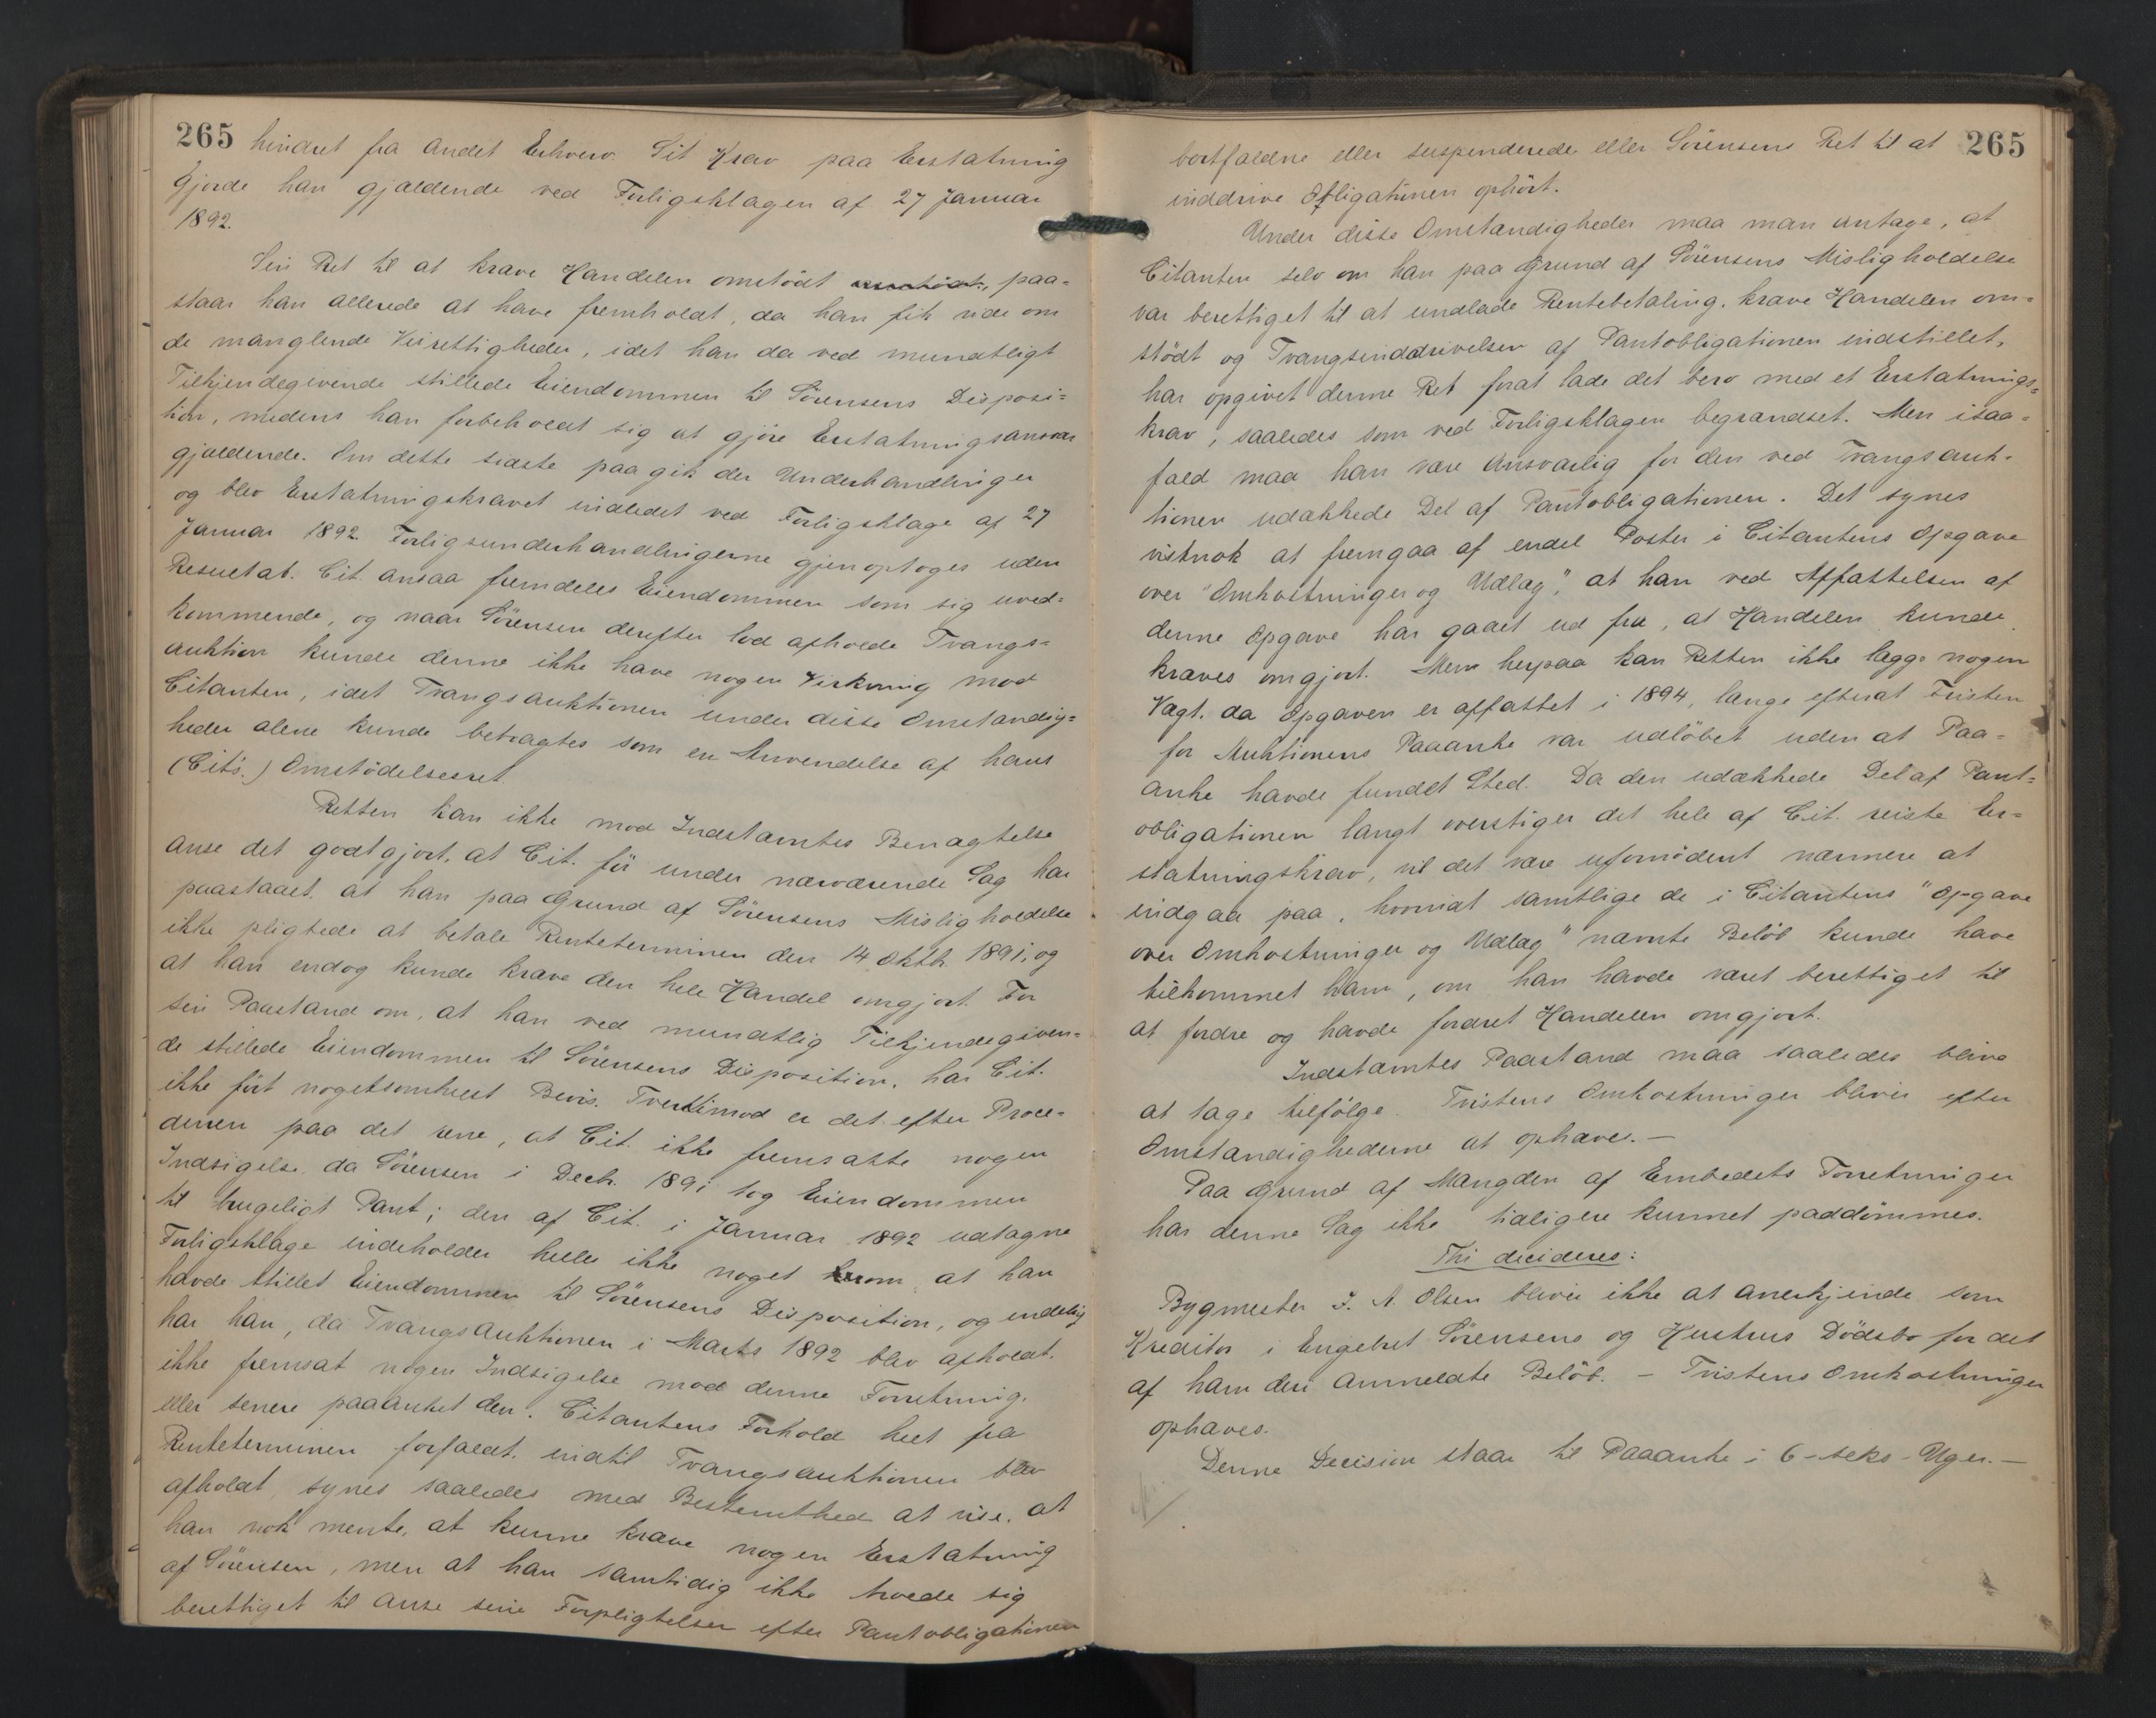 265 hindret fra andet Erhverv. Sit Krav paa Erstatning
gjorde han gjældende ved Forligsklagen af 27 Januar
1892.
Sin Ret til at kræve Handelen omstödt omstödt, paa-
staar han allerede at have fremholdt, da han fik vide om
de manglende Veirettigheder, idet han da ved mundtligt
Tilkjendegivende stillede Eiendommen til Sörensens Disposi-
tion, medens han forbeholdt sig at gjöre Erstatningsansvar
gjældende. Om dette sidste paagik der Underhandlinger
og blev Erstatningskravet indledet ved Forligsklage af 27
Januar 1892. Forligsunderhandlingerne gjenoptoges uden
Resultat. Cit. ansaa fremdeles Eiendommen som sig uved-
kommende, og naar Sörensen derefter lod afholde Tvangs-
auktion kunde denne ikke have nogen Virkning mod
Citanten, idet Tvangsauktionen under disse Omstændig-
heder alene kunde betragtes som en Anvendelse af hans
(Cit's.) Omstödelsesret.
Retten kan ikke mod Indstævntes Benægtelse
anse det godtgjort, at Cit. för under nærværende Sag har
paastaaet, at han paa Grund af Sörensens Misligholdelse
ikke pligtede at betale Renteterminen den 14 Oktb. 1891, og
at han endog kunde kræve den hele Handel omgjort. For
sin Paastand om, at han ved mundtlig Tilkjendegiven-
de stillede Eiendommen til Sörensens Disposition, har Cit.
ikke fört nogetsomhelst Bevis. Tvertimod er det efter Proce-
duren paa det rene, at Cit. ikke fremsatte nogen
Indsigelse, da Sörensen i Decb. 1891 tog Eiendommen
til brugeligt Pant; den af Cit. i Januar 1892 udtagne
Forligsklage indeholder heller ikke noget herom, at han
havde stillet Eiendommen til Sörensens Disposition, og endelig
har han, da Tvangsauktionen i Marts 1892 blev afholdt,
ikke fremsat nogen Indsigelse mod denne Forretning,
eller senere paaanket den. Citantens Forhold helt fra
Renteterminen forfaldt, indtil Tvangsauktionen blev
afholdt, synes saaledes med Bestemthed at vise, at
han nok mente, at kunne kræve nogen Erstatning
af Sörensen, men at han samtidig ikke troede sig
berettiget til anse sine Forpligtelser efter Pantobligationen
bortfaldne eller suspenderede eller Sörensens Ret til at 265
inddrive Obligationen ophört.
Under disse Omstændigheder maa man antage, at
Citanten selv om han paa Grund af Sörensens Misligholdelse
var berettiget til at undlade Rentebetaling, kræve Handelen om-
stödt og Tvangsinddrivelsen af Pantobligationen indstillet,
har opgivet denne Ret forat lade det bero med et Erstatnings-
krav, saaledes som ved Forligsklagen begrændset. Men isaa-
fald maa han være ansvarlig for den ved Tvangsauk-
tionen udækkede Del af Pantobligationen. Det synes
vistnok at fremgaa af endel Poster i Citantens Opgave
over "Omkostninger og Udlæg", at han ved Affattelsen af
denne Opgave har gaaet ud fra, at Handelen kunde
kræves omgjort. Men herpaa kan Retten ikke lægge nogen
Vægt, da Opgaven er affattet i 1894, længe efterat Fristen
for Auktionens Paaanke var udlöbet uden at Paa-
anke havde fundet Sted. Da den udækkede Del af Pant-
obligationen langt overstiger det hele af Cit. reiste Er-
statningskrav, vil det være ufornödent nærmere at
indgaa paa, hvorvidt samtlige de i Citantens "Opgave
over Omkostninger og Udlæg" nævnte Belöb kunde have
tilkommet ham, om han havde været berettiget til
at fordre og havde fordret Handelen omgjort.
Indstævntes Paastand maa saaledes blive
at tage tilfölge. Tvistens Omkostninger bliver efter
Omstændighederne at ophæves.—
Paa Grund af Mængden af Embedets Forretninger
har denne Sag ikke tidligere kunnet paadömmes.
Thi decideres:
Bygmester J. A. Olsen bliver ikke at anerkjende som
Kreditor i Engebret Sörensens og Hustrus Dödsbo for det
af ham deri anmeldte Belöb. — Tvistens Omkostninger
ophæves.
Denne Decision staar til Paaanke i 6 - seks - Uger.—